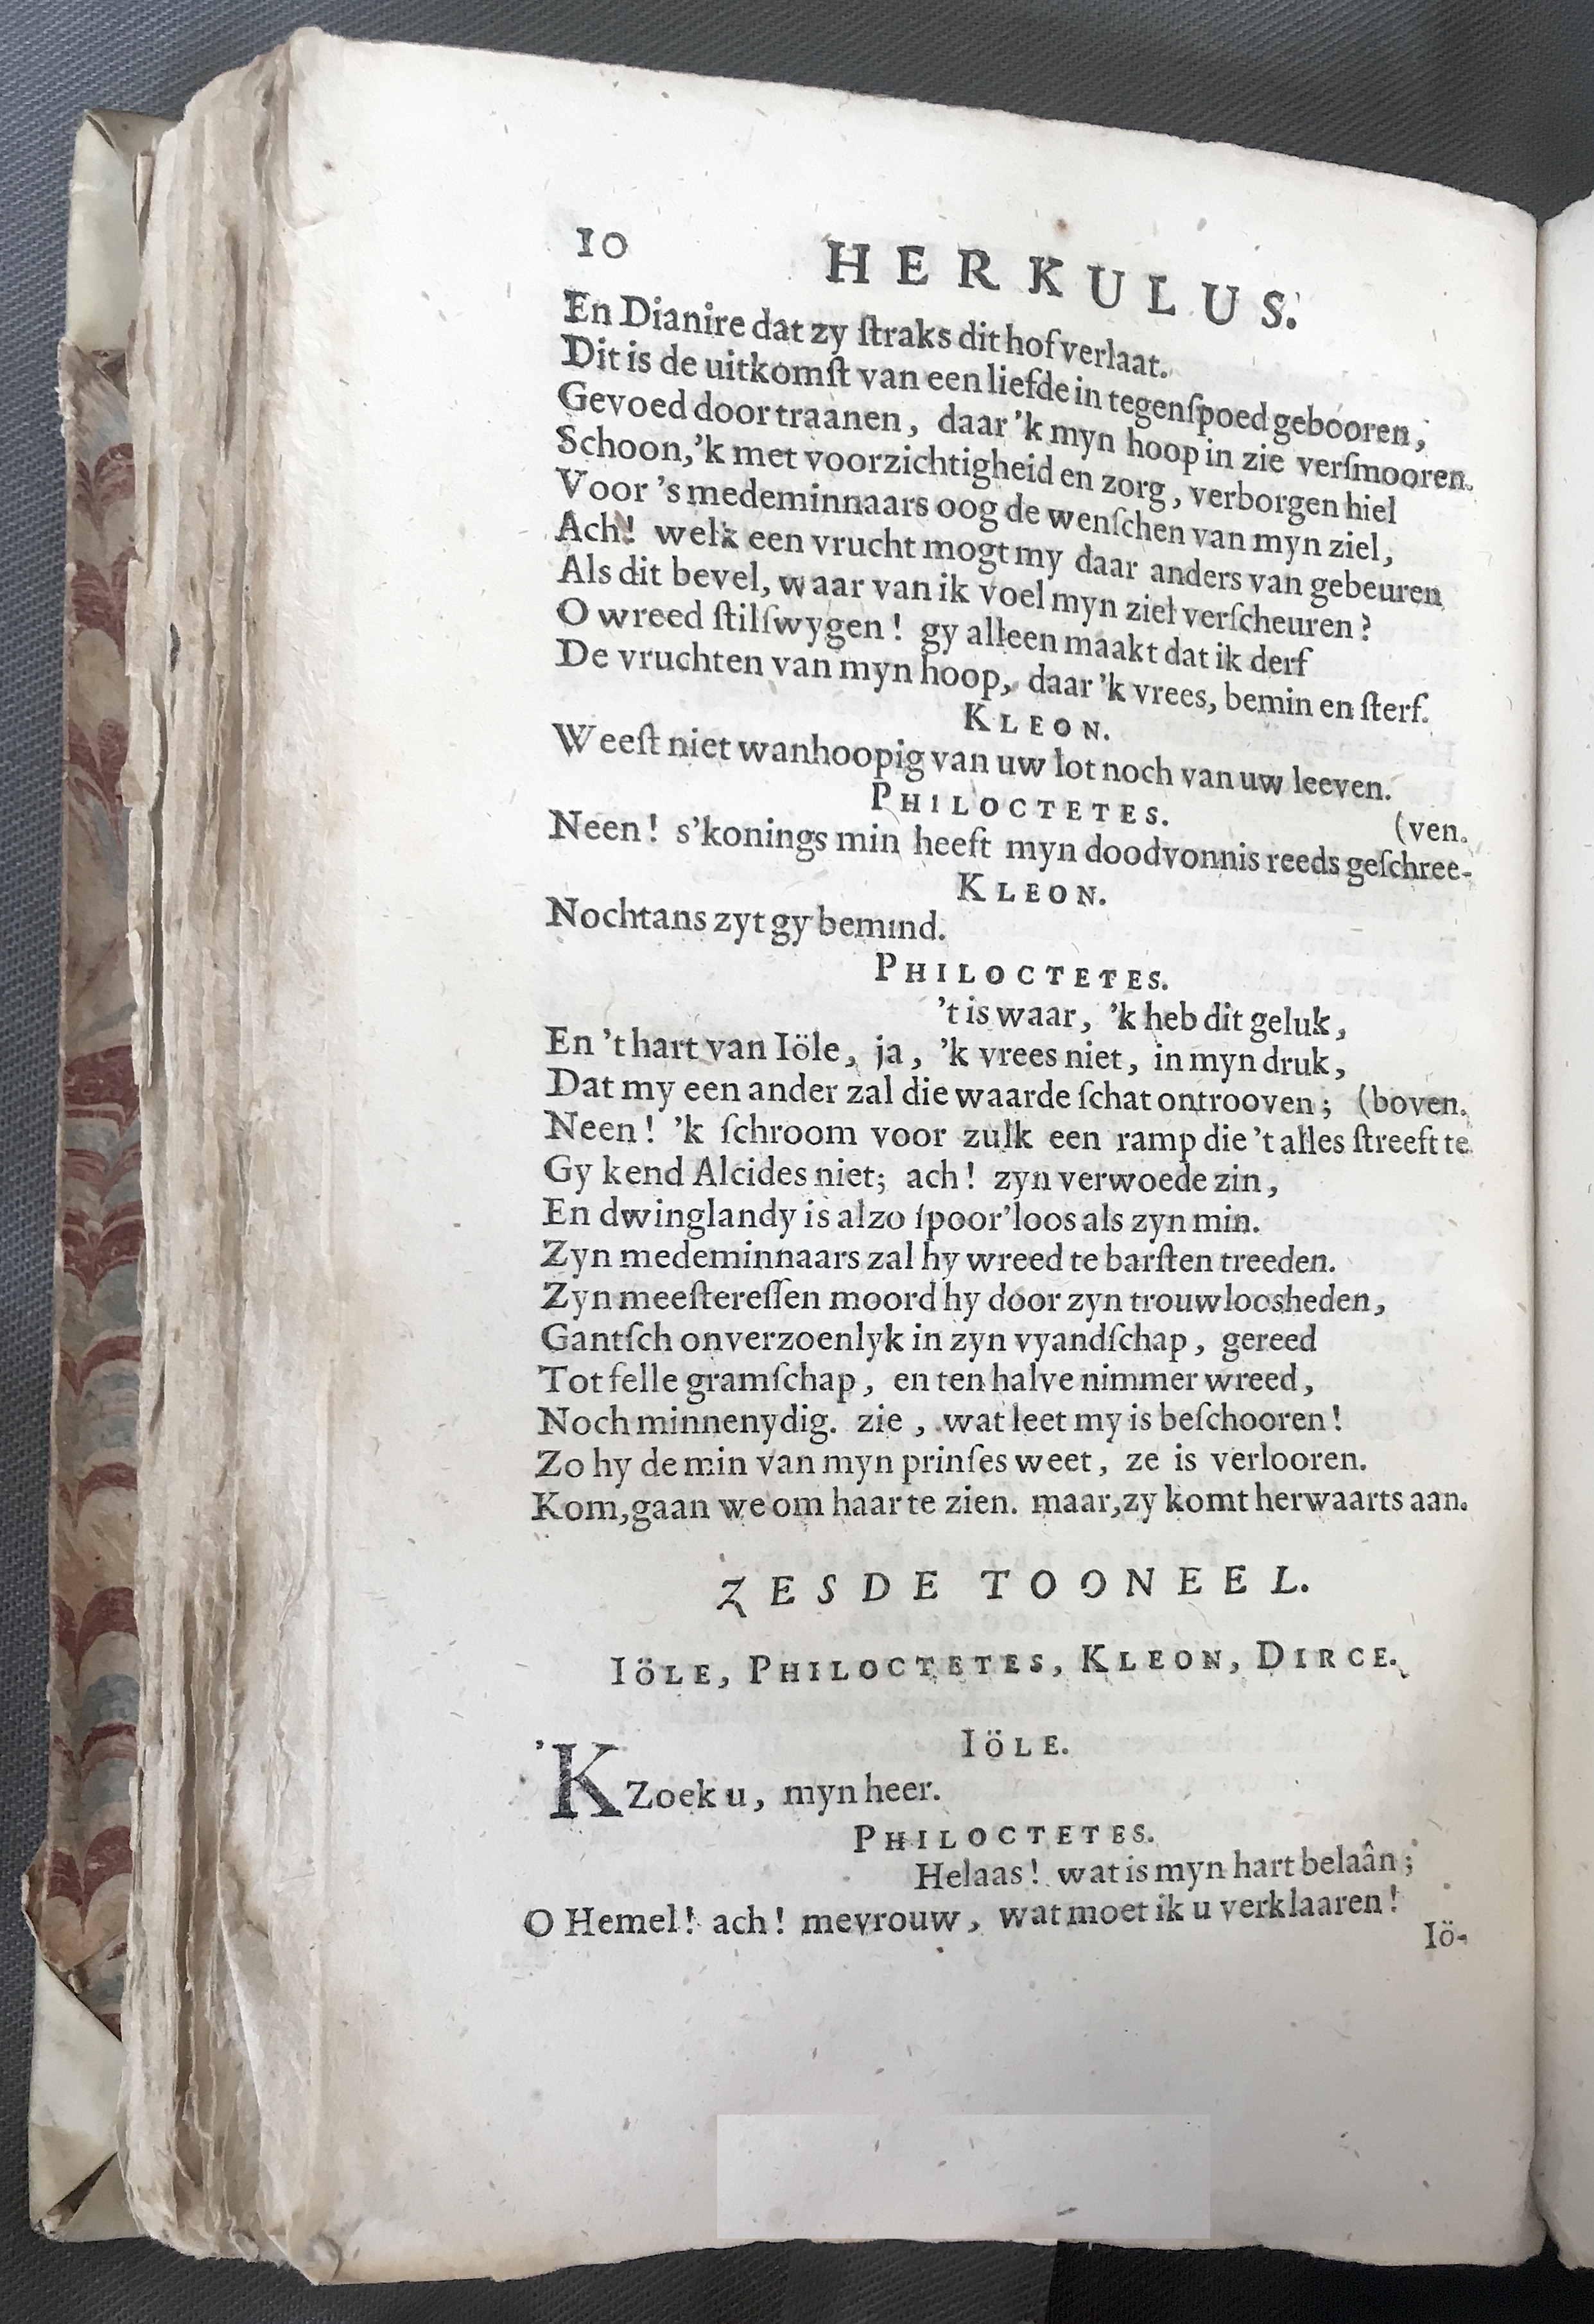 10 HERKULUS.
En Dianire dat zy ſtraks dit hof verlaat.
Dit is de uitkomſt van een liefde in tegenſpoed gebooren,
Gevoed door traanen, daar 'k myn hoop in zie verſmooren.
Schoon,'k met voorzichtigheid en zorg, verborgen hiel
Voor 's medeminnaars oog de wenſchen van myn ziel,
Ach! welk een vrucht mogt my daar anders van gebeuren
Als dit bevel, waar van ik voel myn ziel verſcheuren?
O wreed ſtilſwygen! gy alleen maakt dat ik derf
De vruchten van myn hoop, daar 'k vrees, bemin en ſterf.
KLEON.
Weeſt niet wanhoopig van uw lot noch van uw leeven.
PHILOCTETES.
(ven.
Neen! s'konings min heeft myn doodvonnis reeds geſchree-
KLEON.
Nochtans zyt gy bemind.
PHILOCTETES.
't is waar, 'k heb dit geluk,
En 't hart van Iöle, ja, 'k vrees niet, in myn druk,
Dat my een ander zal die waarde ſchat ontrooven; (boven.
Neen! 'k ſchroom voor zulk een ramp die 't alles ſtreeft te
Gy kend Alcides niet; ach! zyn verwoede zin,
En dwinglandy is alzo ſpoor'loos als zyn min.
Zyn medeminnaars zal hy wreed te barſten treeden.
Zyn meeſtereſſen moord hy door zyn trouwloosheden,
Gantſch onverzoenlyk in zyn vyandſchap, gereed
Tot felle gramſchap, en ten halve nimmer wreed,
Noch minnenydig. zie, wat leet my is beſchooren!
Zo hy de min van myn prinſes weet, ze is verlooren.
Kom,gaan we om haar te zien. maar,zy komt herwaarts aan.
ZESDE TOONEEL.
IöLE, PHILOCTETES, KLEON, DIRCE.
IöLE.
'K Zoek u, myn heer.
PHILOCTETES.
Helaas! wat is myn hart belaân;
O Hemel! ach! mevrouw, wat moet ik u verklaaren!
Iö-